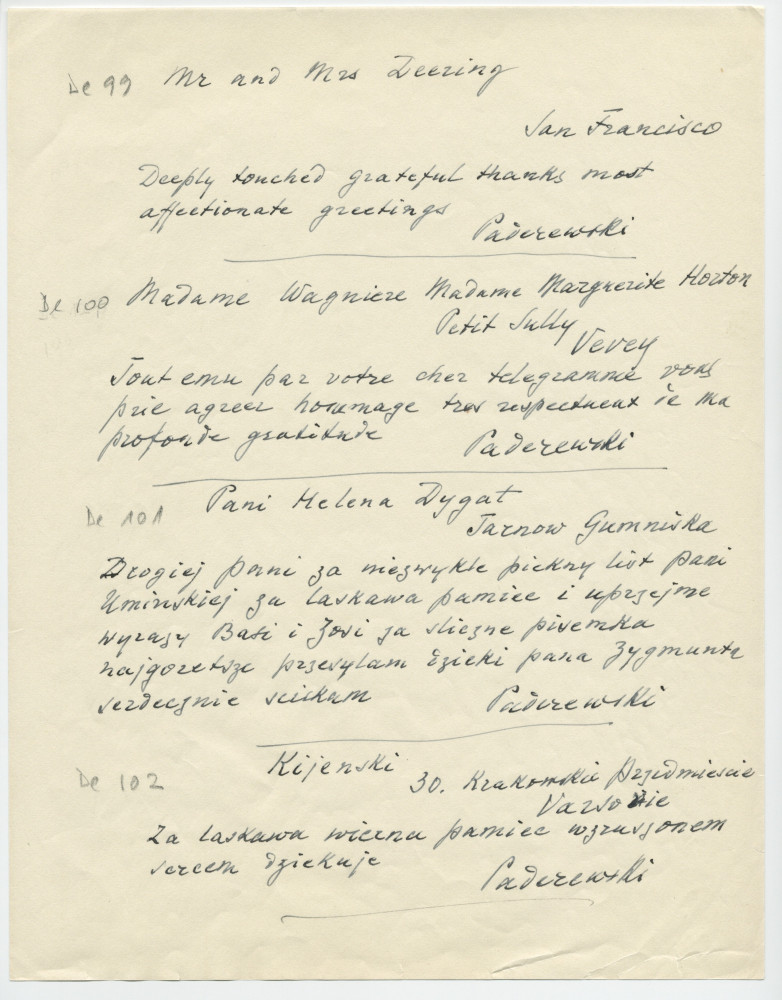 De 99 Mr and Mrs Deering
San Francisco
Deeply touched grateful thanks most
affectionate greetings
Paderewski
De 100 Madame Wagniere Madame Marguerite Horton
Petit Sully
Vevey
Tout emu par votre cher telegramme vous
prie agreer hommage tres respectueux de ma
profonde gratitude
Paderewski
De 101 Pani Helena Dygat
Tarnow Gumniska
Drogiej pani za niezwykle piekny list pani
Uminskiej za laskawa pamiec i uprzejme
wyrazy Basi i Zosi za sliczne pisemka
najgoretsze przesylam dzieki pana Zygmunta
serdecznie sciskam
Paderewski
De 102 Kijenski
30. Krakowskie Przedmiescie
Varsovie
Za laskawa wierna pamiec wzruszonem
sercem dziekuje
Paderewski